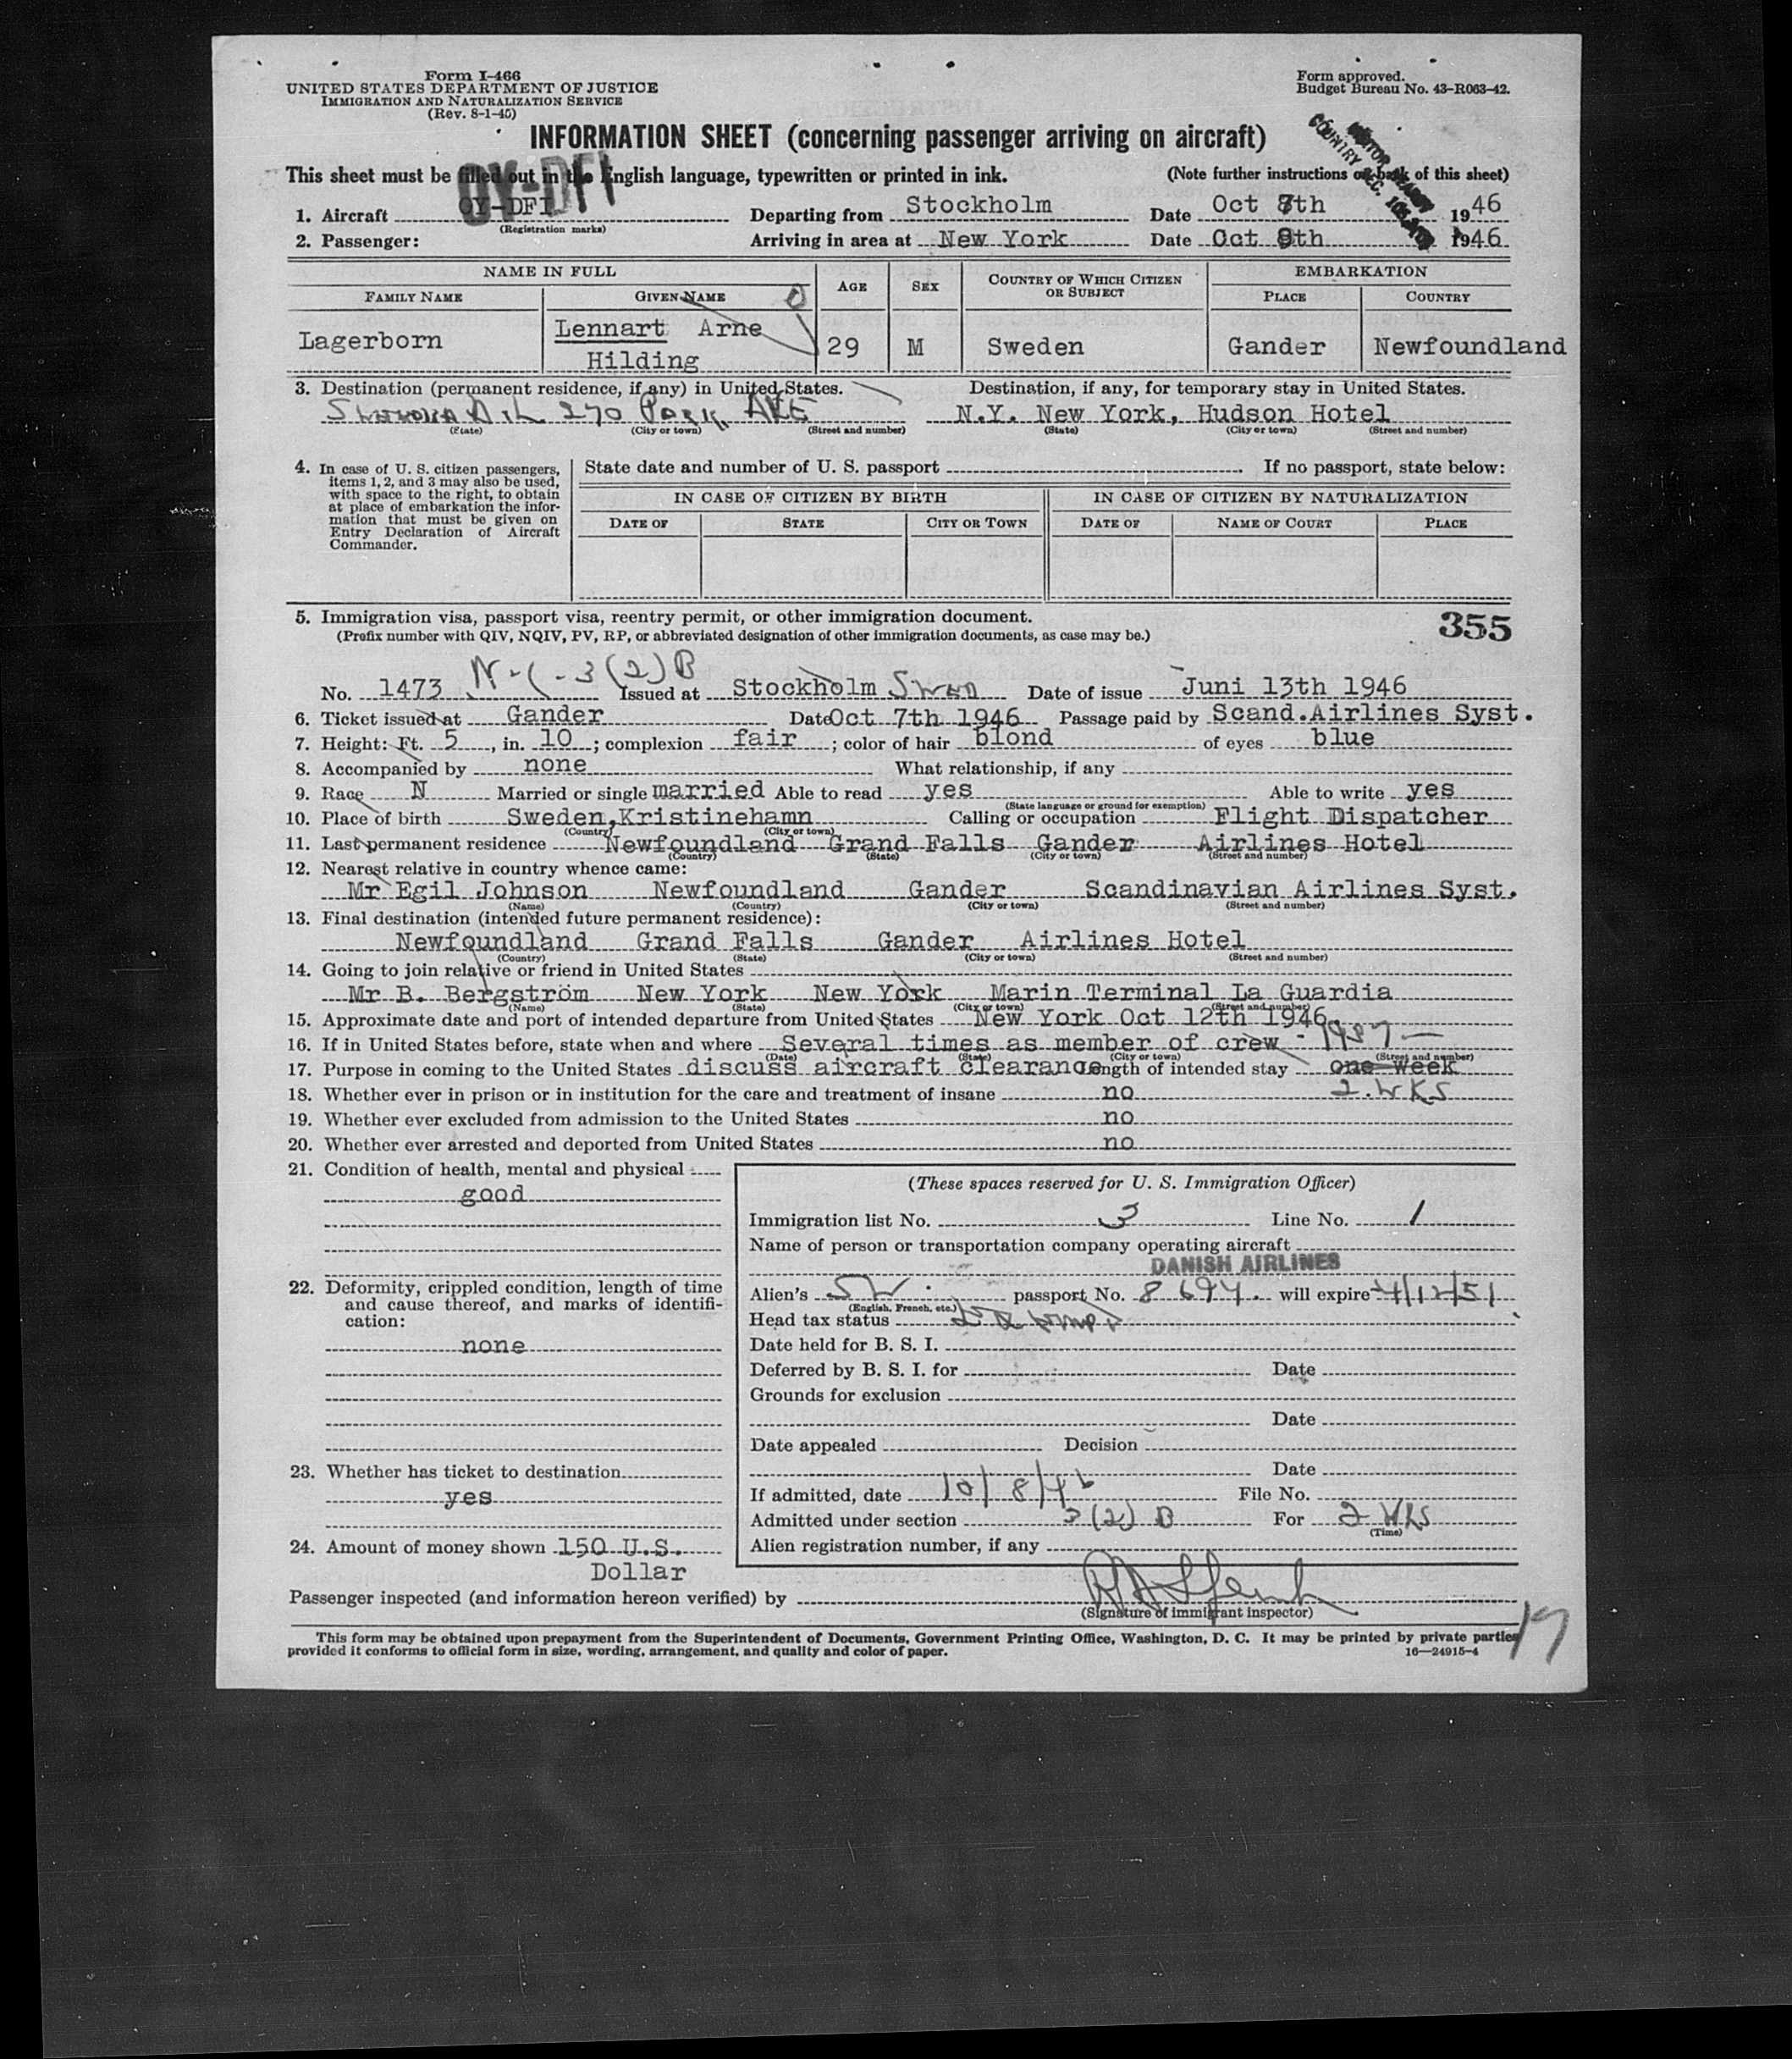 Form I-466
UNITED STATES DEPARTMENT OF JUSTICE
IMMIGRATION AND NATURALIZATION SERVICE
(Rev. 8-1-45)
Form approved.
Budget Bureau No. 43-R063-42.
INFORMATION SHEET (concerning passenger arriving on aircraft)
This sheet must be filled out in the English language, typewritten or printed in ink. (Note further instructions on back of this sheet)
OY-DFI
1. Aircraft OY-DFI Departing from Stockholm Date Oct 7th 1946
(Registration marks)
2. Passenger: Arriving in area at New York Date Oct 8th 1946
NAME IN FULL AGE SEX COUNTRY OF WHICH CITIZEN OR SUBJECT EMBARKATION
FAMILY NAME GIVEN NAME PLACE COUNTRY
Lagerborn Lennart Arne Hilding 29 M Sweden Gander Newfoundland
3. Destination (permanent residence, if any) in United States. Destination, if any, for temporary stay in United States.
270 Park AVE N.Y. New York, Hudson Hotel
(State) (City or town) (Street and number) (State) (City or town) (Street and number)
4. In case of U. S. citizen passengers, items 1, 2, and 3 may also be used, with space to the right, to obtain at place of embarkation the information that must be given on Entry Declaration of Aircraft Commander.
State date and number of U. S. passport If no passport, state below:
IN CASE OF CITIZEN BY BIRTH IN CASE OF CITIZEN BY NATURALIZATION
DATE OF STATE CITY OR TOWN DATE OF NAME OF COURT PLACE
5. Immigration visa, passport visa, reentry permit, or other immigration document.
(Prefix number with QIV, NQIV, PV, RP, or abbreviated designation of other immigration documents, as case may be.)
355
3(2)B
No. 1473 Issued at Stockholm Swed Date of issue Juni 13th 1946
6. Ticket issued at Gander Date Oct 7th 1946 Passage paid by Scand.Airlines Syst.
7. Height: Ft. 5, in. 10; complexion fair; color of hair blond of eyes blue
8. Accompanied by none What relationship, if any
9. Race N Married or single married Able to read yes Able to write yes
(State language or ground for exemption)
10. Place of birth Sweden,Kristinehamn Calling or occupation Flight Dispatcher
(Country) (City or town)
11. Last permanent residence Newfoundland Grand Falls Gander Airlines Hotel
(Country) (State) (City or town) (Street and number)
12. Nearest relative in country whence came:
Mr Egil Johnson Newfoundland Gander Scandinavian Airlines Syst.
(Name) (Country) (City or town) (Street and number)
13. Final destination (intended future permanent residence):
Newfoundland Grand Falls Gander Airlines Hotel
(Country) (State) (City or town) (Street and number)
14. Going to join relative or friend in United States
Mr B. Bergström New York New York Marin Terminal La Guardia
(Name) (State) (City or town) (Street and number)
15. Approximate date and port of intended departure from United States New York Oct 12th 1946
16. If in United States before, state when and where Several times as member of crew - 1937 -
(Date) (State) (City or town) (Street and number)
17. Purpose in coming to the United States discuss aircraft clearance Length of intended stay one week
2. WKS
18. Whether ever in prison or in institution for the care and treatment of insane no
19. Whether ever excluded from admission to the United States no
20. Whether ever arrested and deported from United States no
21. Condition of health, mental and physical
good
22. Deformity, crippled condition, length of time and cause thereof, and marks of identification:
none
23. Whether has ticket to destination
yes
24. Amount of money shown 150 U.S.
Dollar
(These spaces reserved for U. S. Immigration Officer)
Immigration list No. 3 Line No. 1
Name of person or transportation company operating aircraft
DANISH AIRLINES
Alien's SW. passport No. 8694. will expire 4/12/51
(English, French, etc.)
Head tax status
Date held for B. S. I.
Deferred by B. S. I. for Date
Grounds for exclusion
Date
Date appealed Decision
Date
If admitted, date 10/8/46 File No.
Admitted under section 3(2) B For 2 WKS
(Time)
Alien registration number, if any
Passenger inspected (and information hereon verified) by
(Signature of immigrant inspector)
This form may be obtained upon prepayment from the Superintendent of Documents, Government Printing Office, Washington, D. C. It may be printed by private parties
provided it conforms to official form in size, wording, arrangement, and quality and color of paper. 16—24915-4